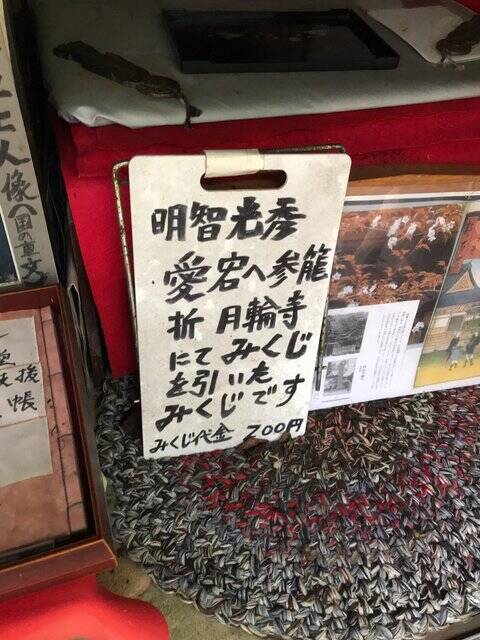 明智光秀
愛宕へ参籠
折月輪寺
にてみくじ
を引いた
みくじです
みくじ代金 200円
人像(国の重文
後
帳